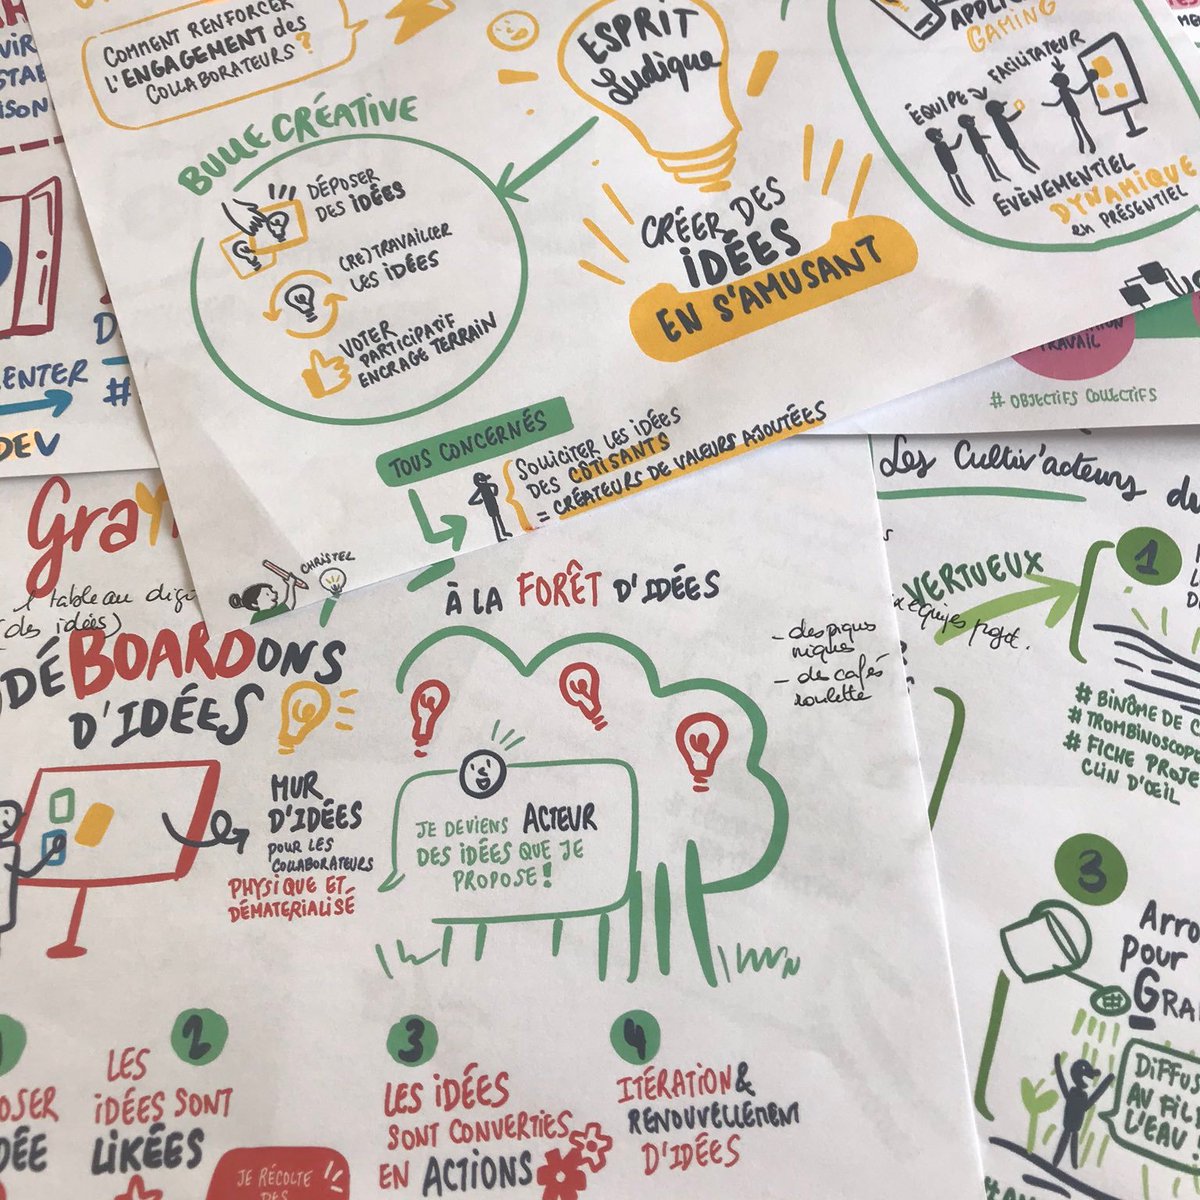 COMMENT RENFORCER
L'ENGAGEMENT des
COLLABORATEURS?
BULLE CRÉATIVE
DÉPOSER
DES IDÉES
(RE)TRAVAILLER
LES IDÉES
VOTER
PARTICIPATIF
ENCRAGE TERRAIN
ESPRIT
ludique
CRÉER DES
IDÉES
EN S'AMUSANT
GAMING
ÉQUIPE
FACILITATEUR
ÉVÈNEMENTIEL
DYNAMIQUE
en PRÉSENTIEL
TOUS CONCERNÉS
SOLLICITER LES IDÉES
DES CÔTISANTS
= CRÉATEURS DE VALEURS AJOUTÉES
CHRISTEL
TRAVAIL
# OBJECTIFS COLLECTIFS
DEV
1 tableau digi
(des idées)
DÉBOARDONS
D'IDÉES
MUR
D'IDÉES
POUR LES
COLLABORATEURS
PHYSIQUE ET
DÉMATERIALISÉ
À LA FORÊT D'IDÉES
- des piques
niques
- de cafés
roulette
JE DEVIENS ACTEUR
DES IDÉES QUE JE
PROPOSE!
2
LES
IDÉES SONT
LIKÉES
JE RÉCOLTE
DES
3
LES IDÉES
SONT CONVERTIES
EN ACTIONS
4
ITÉRATION &
RENOUVELLEMENT
D'IDÉES
Les Cultiv'acteurs
VERTUEUX
équipes projet.
1
# BINÔME DE
# TROMBINOSCOPE
# FICHE PROJE
CLIN D'ŒIL
3
Arro
pour
GRA
DIFFU
AU FIL
L'EAU